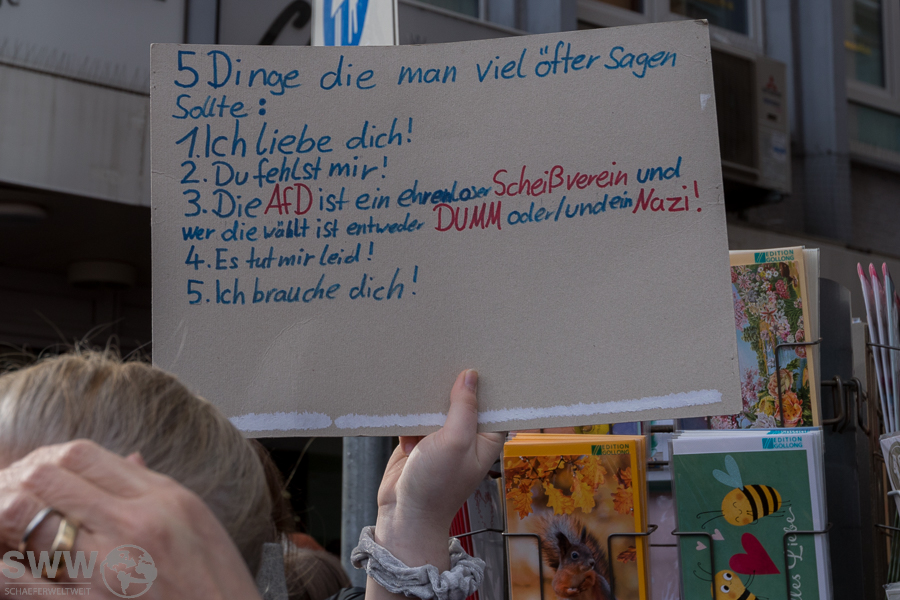 5 Dinge die man viel öfter sagen
Sollte :
1. Ich liebe dich!
2. Du fehlst mir!
3. Die AfD ist ein ehrenloser Scheißverein und
wer die wählt ist entweder DUMM oder/und ein Nazi!
4. Es tut mir leid!
5. Ich brauche dich!
EDITION
GOLLONG
EDITION
GOLLONG
EDITION
GOLLONG
Liebe
SWW
SCHAEFERWELTWEIT